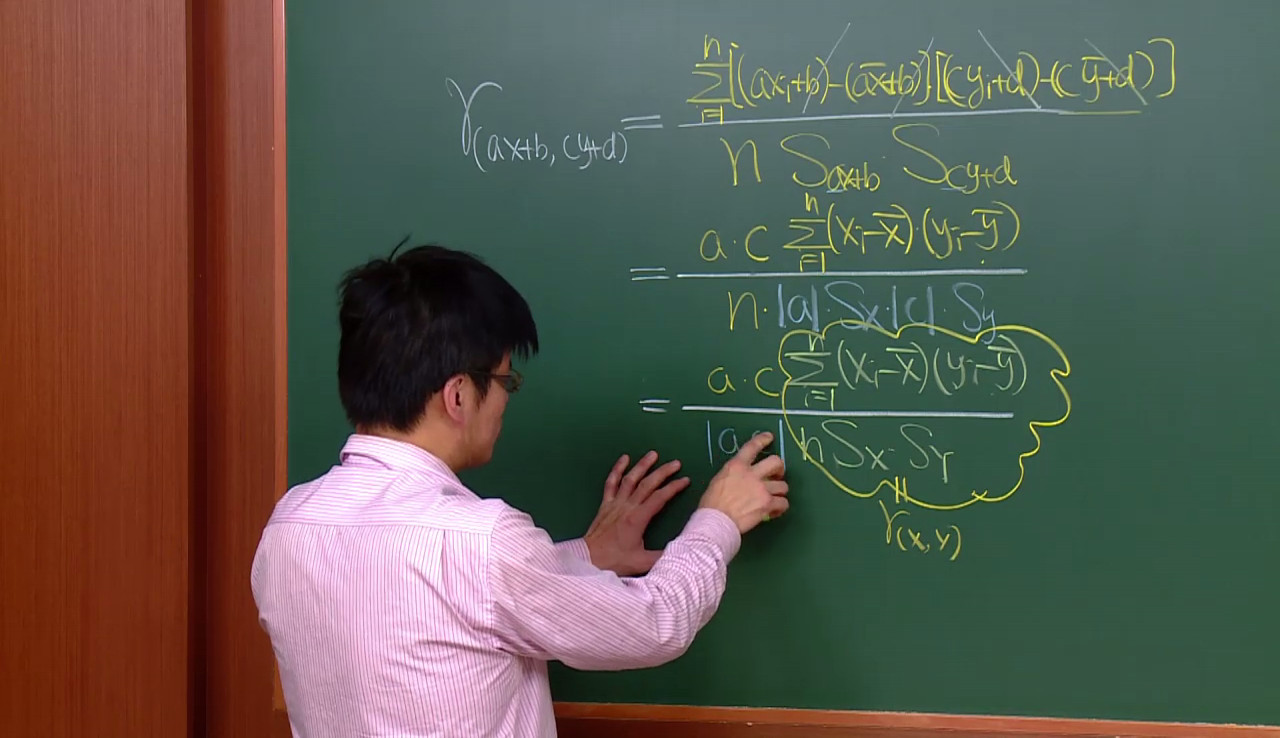 r(ax+b, cy+d) = \frac{\sum_{i=1}^{n}[(ax_i+b)-(a\overline{x}+b)][(cy_i+d)-(c\overline{y}+d)]}{n S_{ax+b} \cdot S_{cy+d}}
= \frac{a \cdot c \sum_{i=1}^{n}(x_i-\overline{x}) \cdot (y_i-\overline{y})}{n \cdot |a| \cdot S_x \cdot |c| \cdot S_y}
= \frac{a \cdot c \sum_{i=1}^{n}(x_i-\overline{x})(y_i-\overline{y})}{|a c| n S_x \cdot S_y}
||
r(x,y)